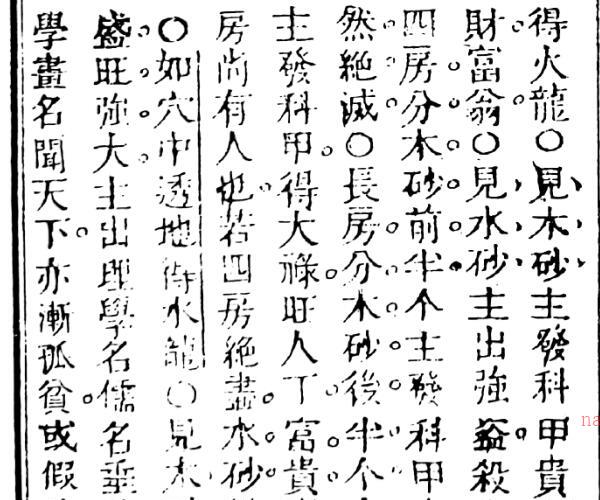 得火龍○見木砂主發科甲貴
財富翁○見水砂主出強盜殺
四房分木砂前半个主發科甲
然絶滅○長房分木砂後半个
主發科甲。得大祿。旺人丁。富貴
房尚有人也。若四房絶盡。水砂
○如穴中透地得水龍○見木
盛旺強大主出理學名儒名垂
學畫名聞天下。亦漸孤貧。或假
na